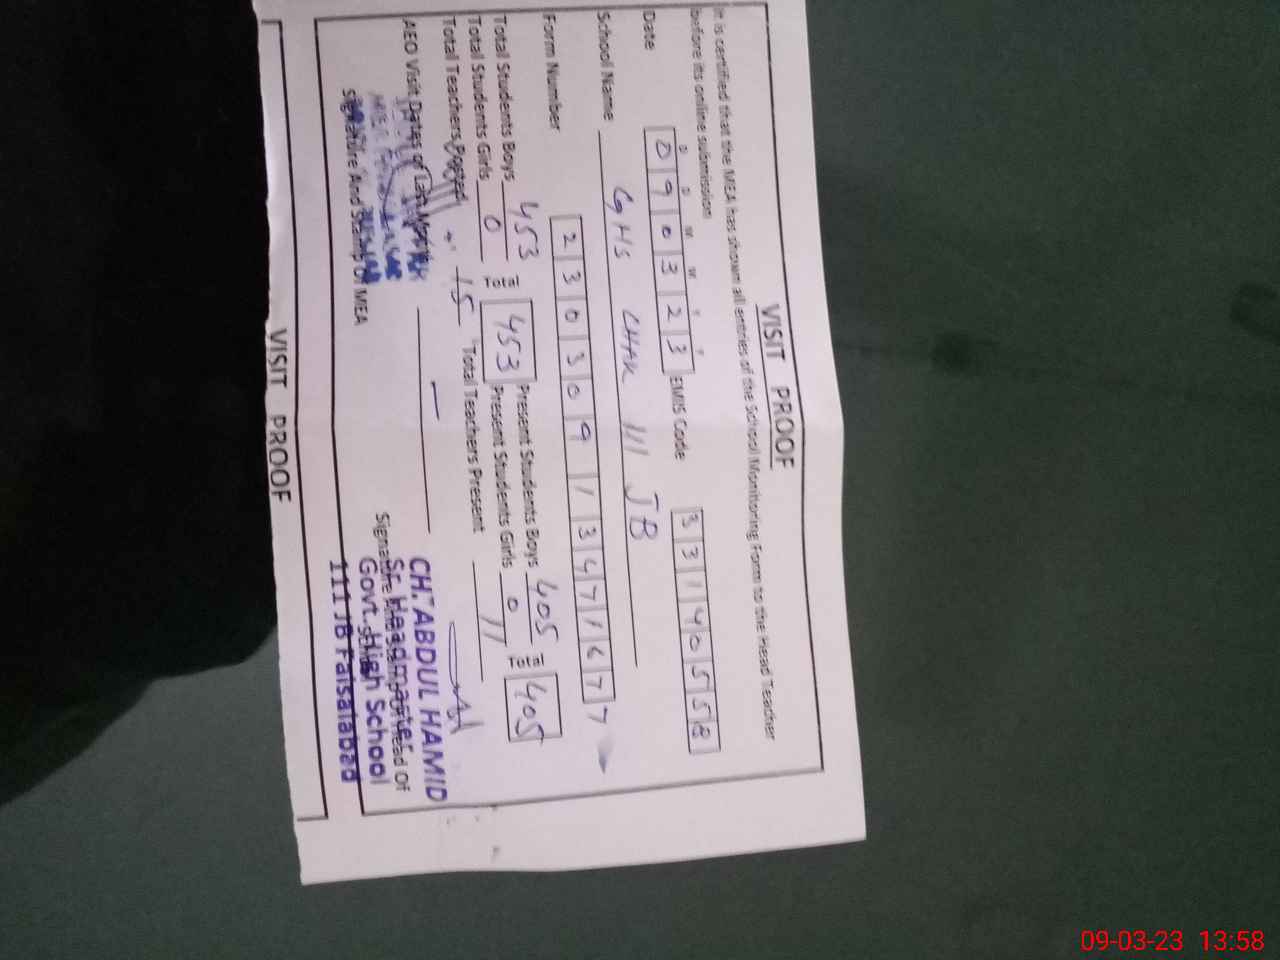 VISIT PROOF
It is certified that the MEA has shown all entries of the School Monitoring Form to the Head Teacher
before its online submission
D D M M Y Y
Date 0 9 0 3 2 3 EMIS Code 3 3 1 4 0 5 5 8
School Name GHS CHAK 111 JB
Form Number 2 3 0 3 0 9 1 1 3 4 7 1 6 7 7
Total Students Boys 453 453 Present Students Boys 405 405
Total Students Girls 0 Present Students Girls 0
Total Teachers Posted 15 Total Teachers Present 11
AEO Visit Dates of Last Month —
Signature And Stamp Of MEA
Signature And Stamp Head Of School
CH. ABDUL HAMID
Sr. Headmaster
Govt. High School
111 JB Faisalabad
VISIT PROOF
09-03-23 13:58